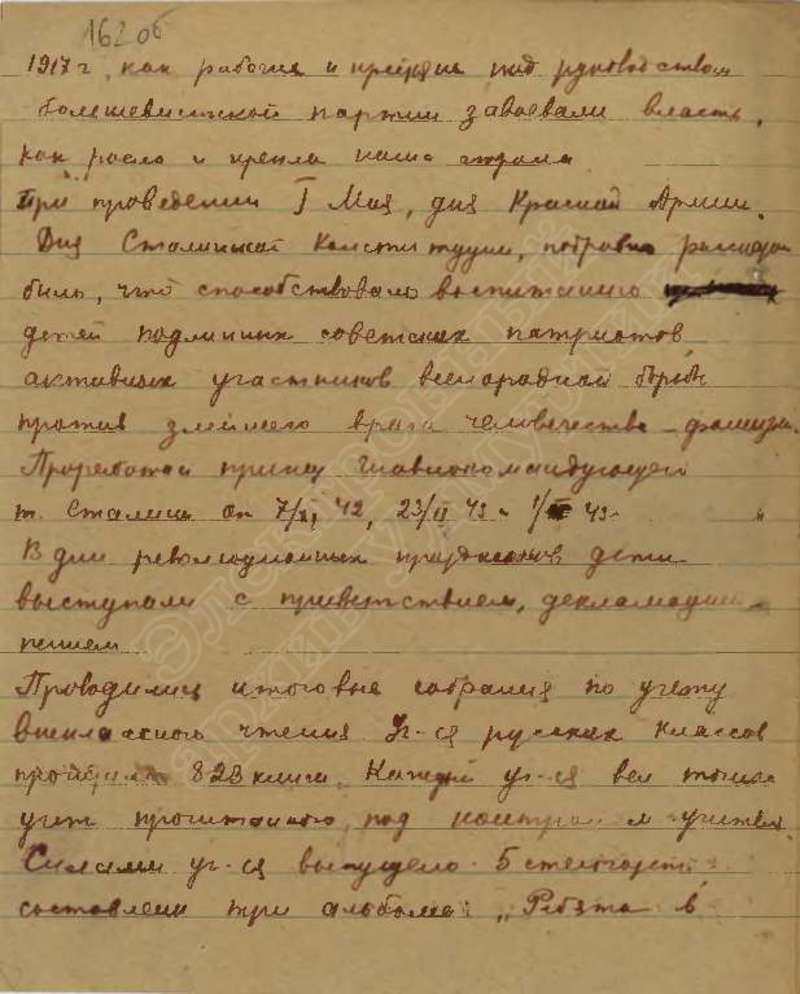 162 об
1917 г, как рабочия и крестяне под руководством
большевистской партии завоевали власть,
как росла и крепла наша страна
При проведении I Мая, дня Красной Армии.
Дня Сталинской Конституции, подробно
было, что способствовало воспитанию
детей подлинных советских патриотов
активных участников всенародной борьбы
против злейшего врага человечества – фашизм.
Проработан приказ Главнокомандующего
т. Сталина от 7/XI 42, 23/II 43 и 1/ 43
В дни революционных праздников дети
выступали с приветствием, декламации
пением
Проводились итоговые собрания по учету
внеклассного чтения Уч-ся русских классов
828 книги. Каждый уч-ся вел
учет прочитанного, под контролем учителя.
Силами уч-ся выпущено 5 стенгазет,
составлены три альбома: „Ребята в